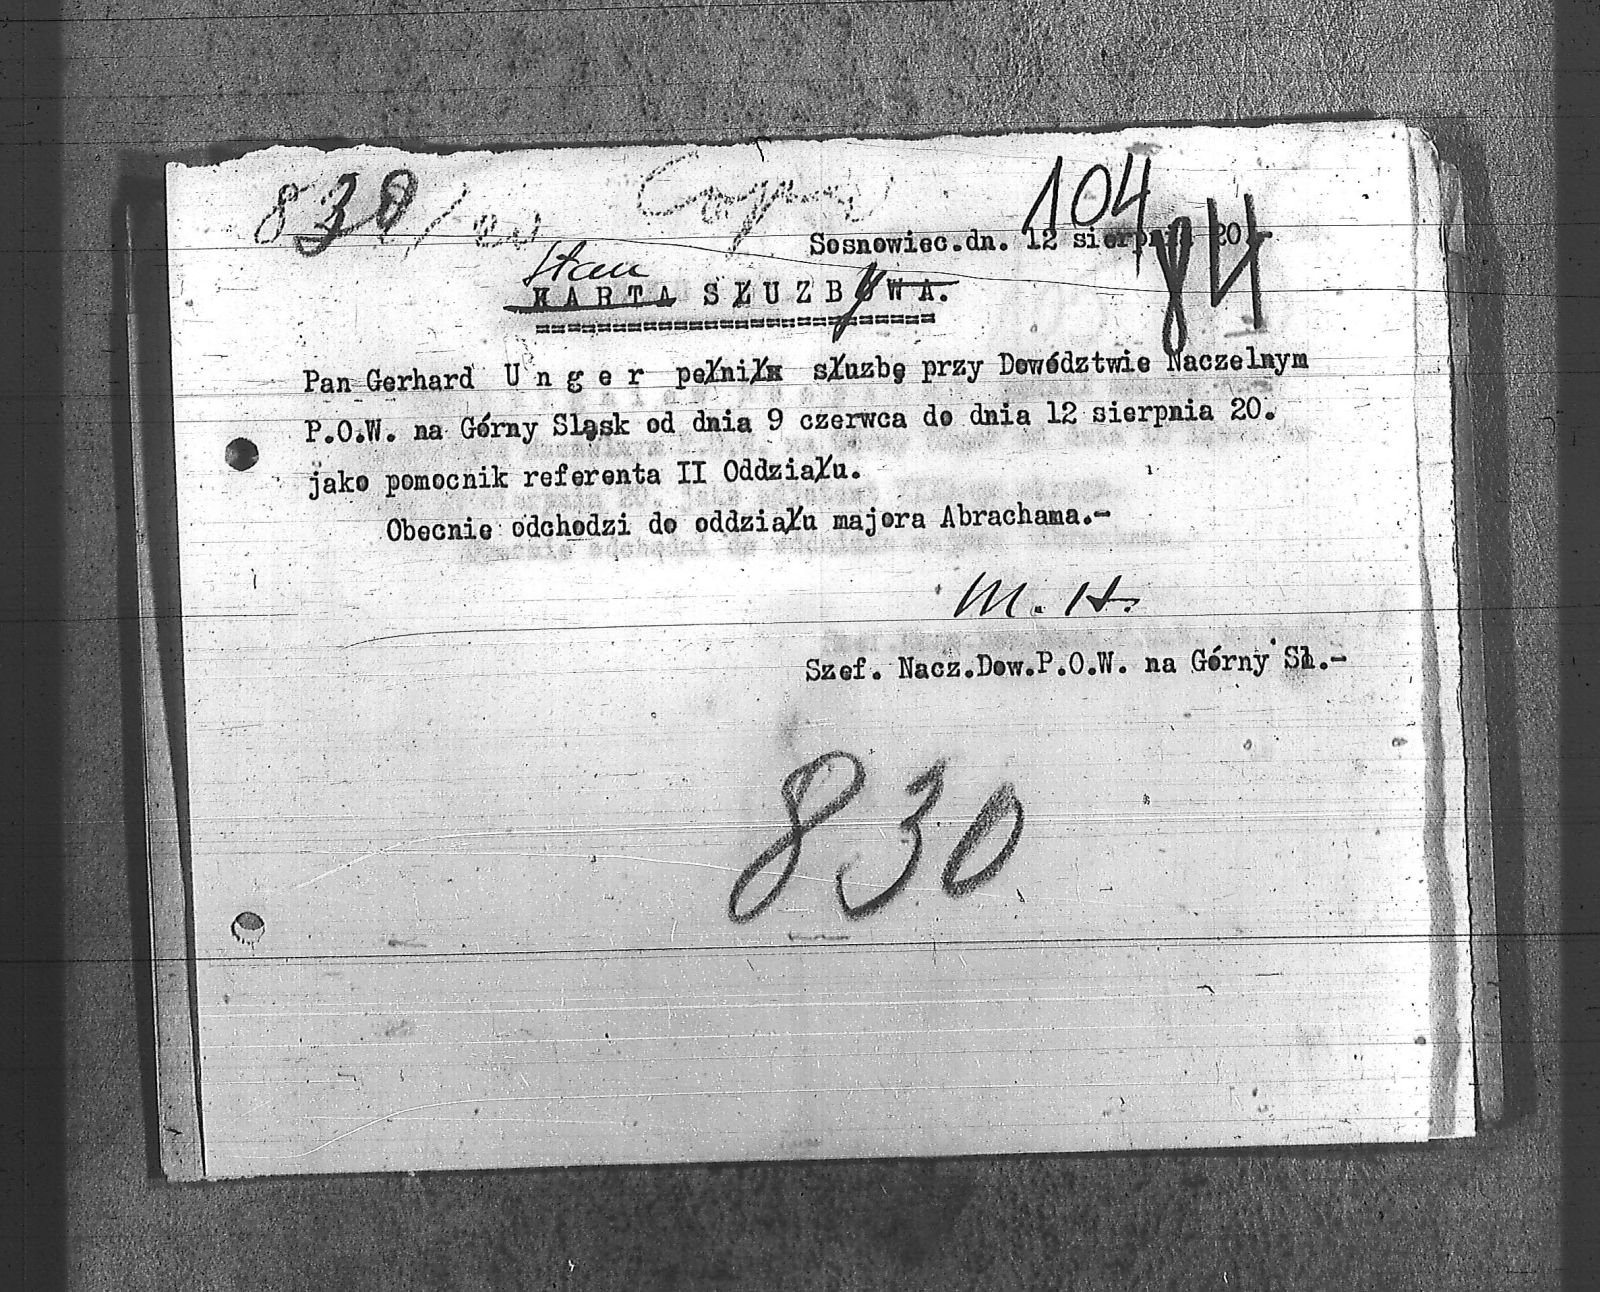 830/20
104
Sosnowiec.dn. 12 sierpnia 20.
84
Stan
KARTA SŁUZBOWA.
Pan Gerhard U n g e r pełnił służbę przy Dowództwie Naczelnym
P.O.W. na Górny Sląsk od dnia 9 czerwca do dnia 12 sierpnia 20.
jako pomocnik referenta II Oddziału.
Obecnie odchodzi do oddziału majora Abrachama.-
M. H.
Szef. Nacz.Dow.P.O.W. na Górny Sł.-
830